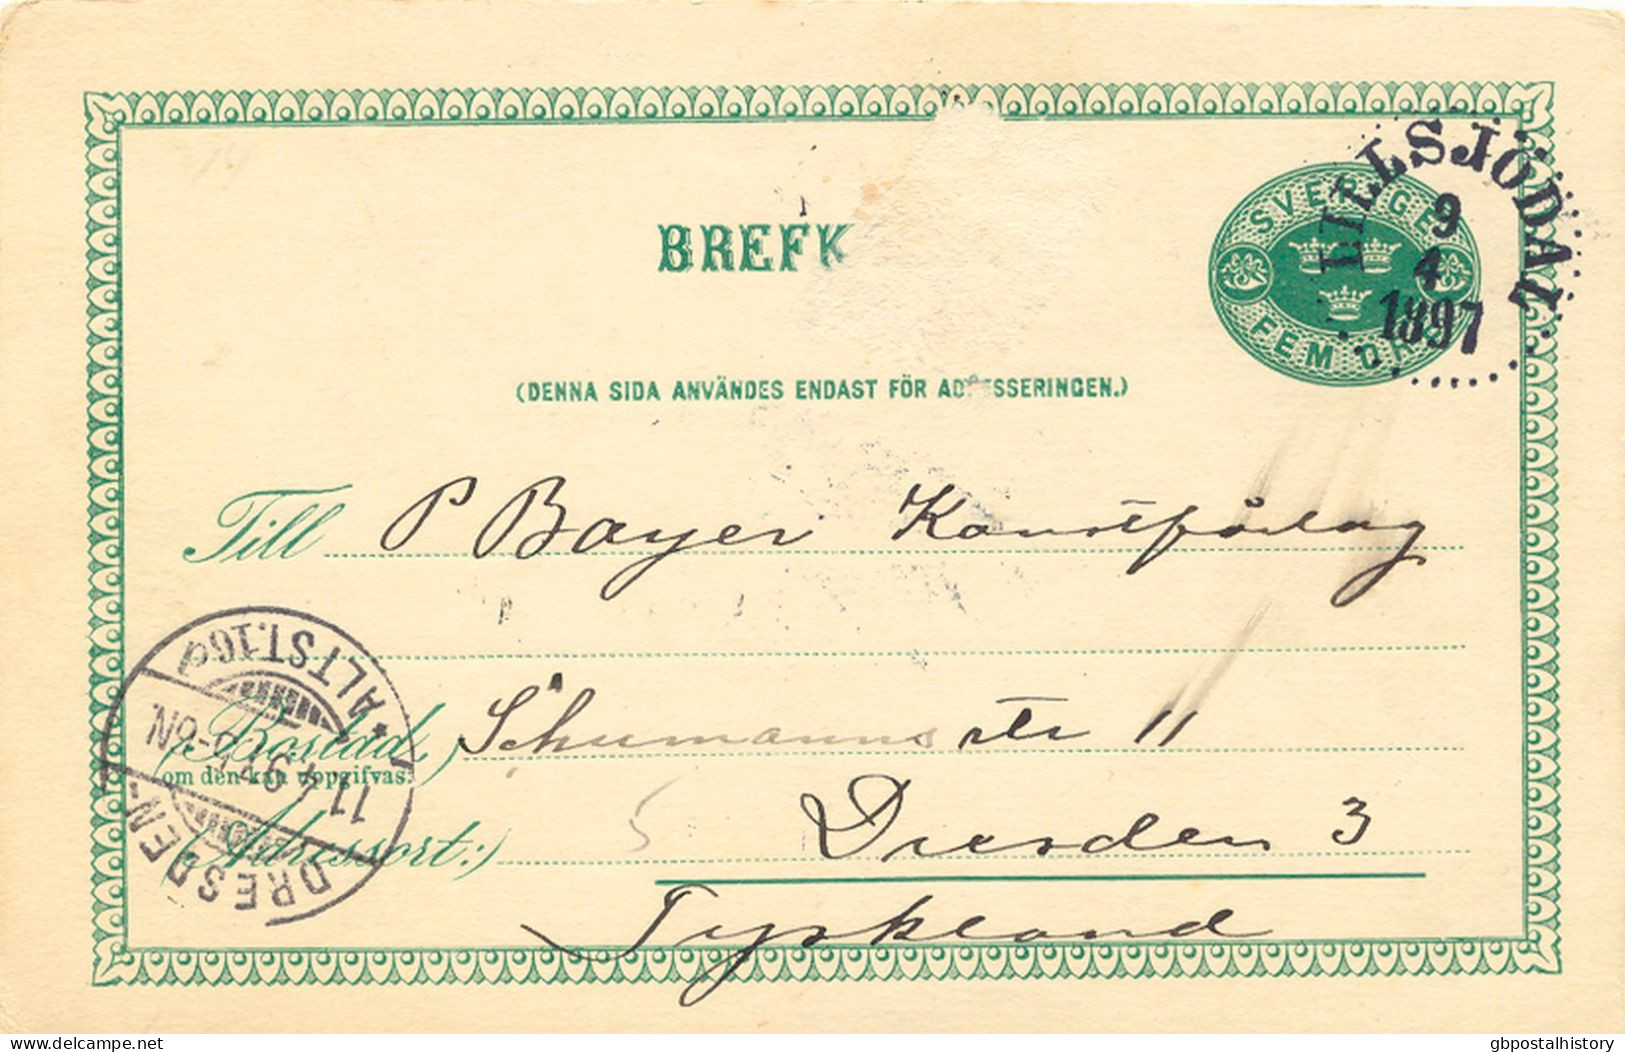 BREFK
SVERIGE
FEM ÖRE
LILLSJÖDAL
9
4
1897
(DENNA SIDA ANVÄNDES ENDAST FÖR ADRESSERINGEN.)
Till P Bayer Konstförlag
(Bostad, Schumanns str 11
om den kan uppgifvas.
(Adressort:) Dresden 3
Tyskland
DRESDEN-
*ALTST.16d
11 4 97 7-8N
www.delcampe.net
gbpostalhistory